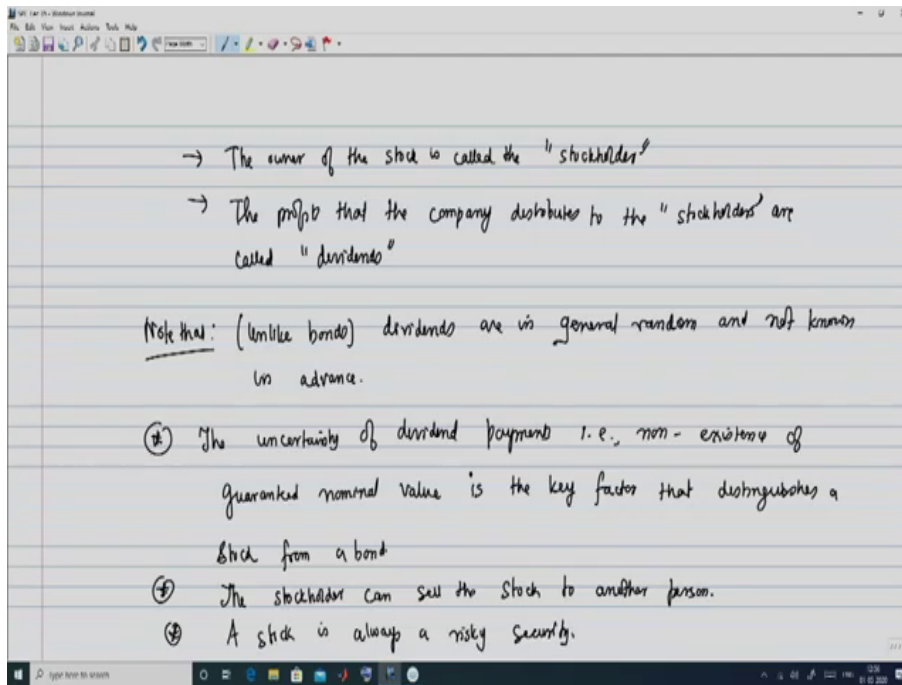 → The owner of the stock is called the "stockholder"
→ The profits that the company distributes to the "stockholders" are
called "dividends"
Note that: (Unlike bonds) dividends are in general random and not known
in advance.
* The uncertainty of dividend payments i.e., non-existence of
guaranteed nominal value is the key factor that distinguishes a
Stock from a bond
* The stockholder can sell the stock to another person.
* A stock is always a risky security.
Type here to search